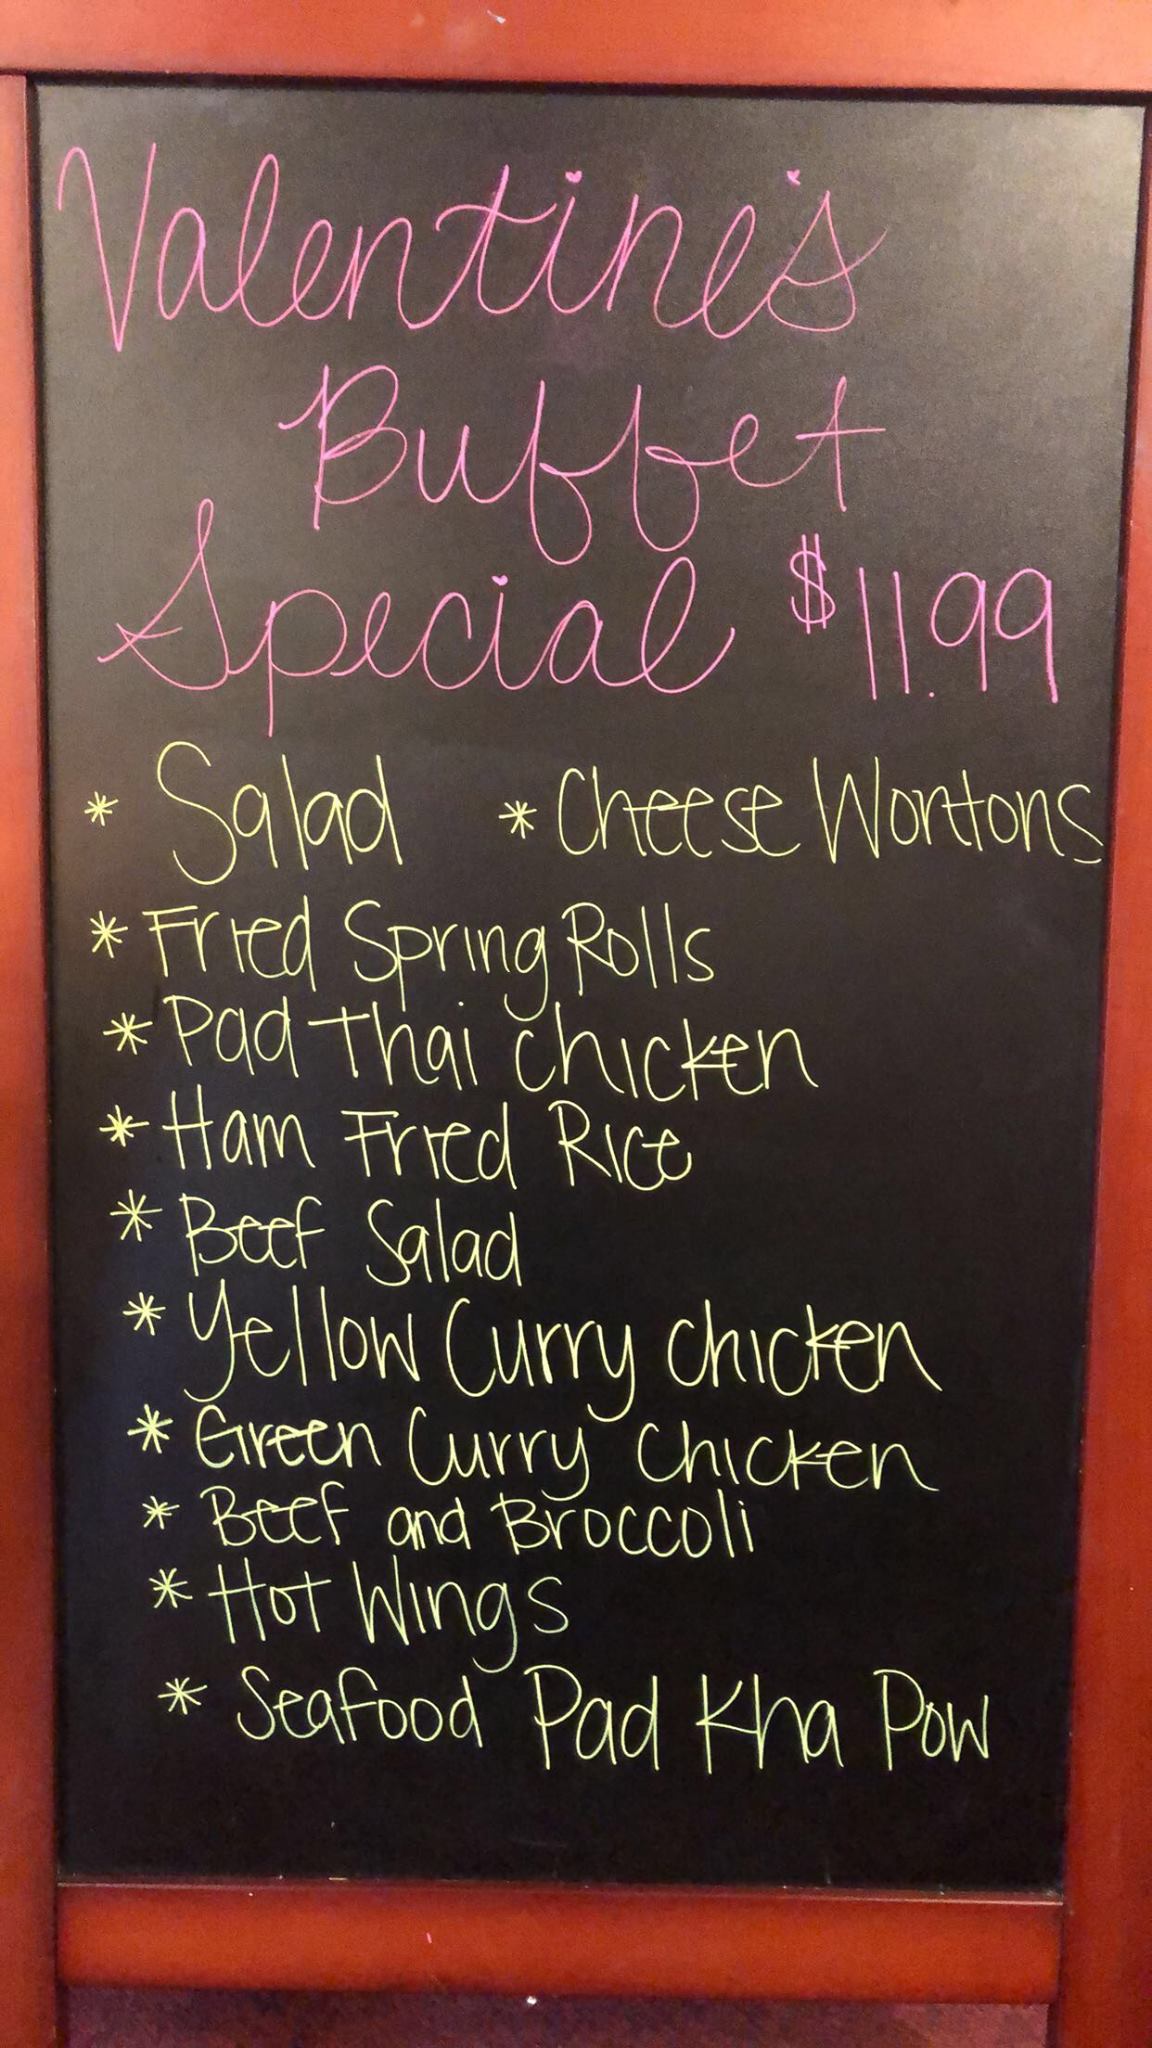 Valentine's
Buffet
Special $11.99
* Salad * Cheese Wontons
* Fried Spring Rolls
* Pad Thai Chicken
* Ham Fried Rice
* Beef Salad
* Yellow Curry Chicken
* Green Curry Chicken
* Beef and Broccoli
* Hot Wings
* Seafood Pad Kha Pow